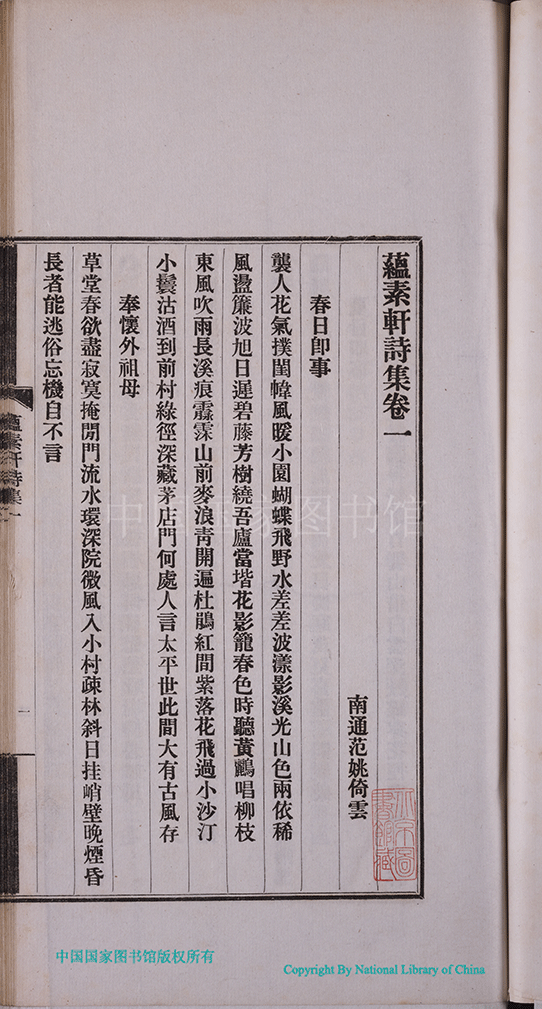 蘊素軒詩集卷一
南通范姚倚雲
春日即事
襲人花氣撲閨幃風暖小園蝴蝶飛野水差差波漾影溪光山色兩依稀
風盪簾波旭日遲碧藤芳樹繞吾廬當堦花影籠春色時聽黃鸝唱柳枝
東風吹雨長溪痕霢霂山前麥浪青開遍杜鵑紅間紫落花飛過小沙汀
小鬟沽酒到前村綠徑深藏茅店門何處人言太平世此間大有古風存
奉懷外祖母
草堂春欲盡寂寞掩閒門流水環深院微風入小村疎林斜日挂峭壁晚煙昏
長者能逃俗忘機自不言
蘊素軒詩集一
一
中国国家图书馆
中国国家图书馆版权所有
Copyright By National Library of China